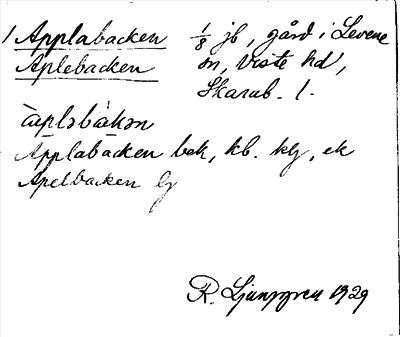 1 Applabacken 1/8 jb, gård i Levene
Aplebacken sn, Viste hd,
Skarab. l.
àplɔbákɔn
Applabacken bek, kb. kg, ek
Apelbacken lg
R. Ljunggren 1929